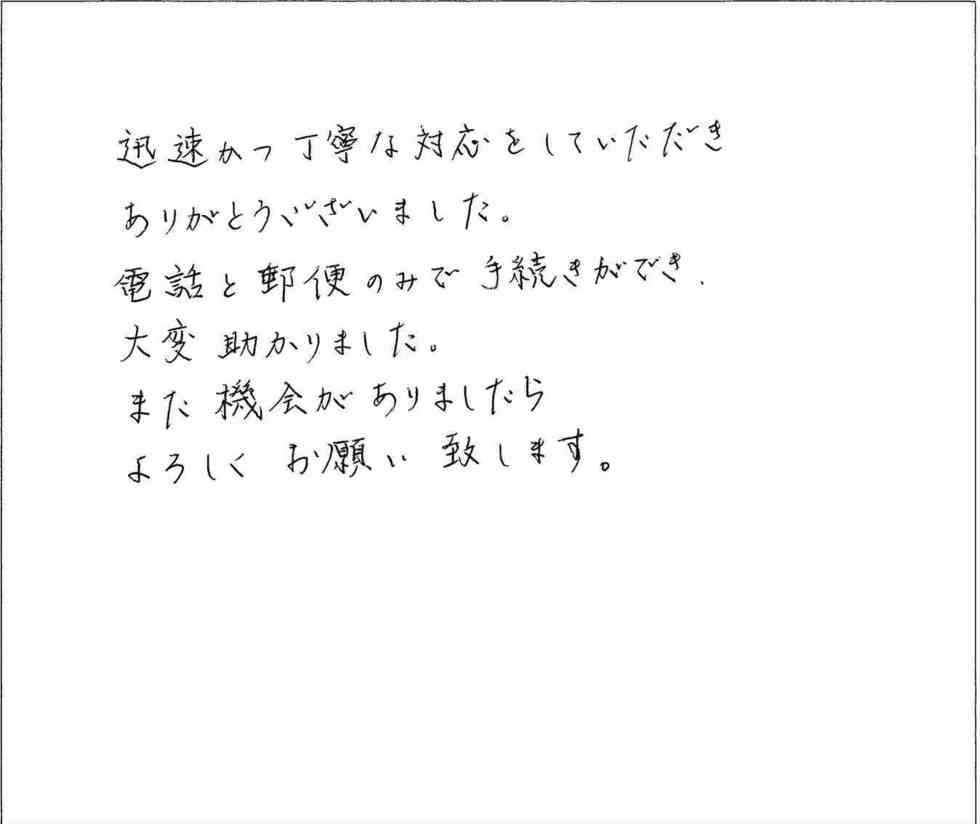 迅速かつ丁寧な対応をしていただき
ありがとうございました。
電話と郵便のみで手続きができ、
大変助かりました。
また機会がありましたら
よろしくお願い致します。